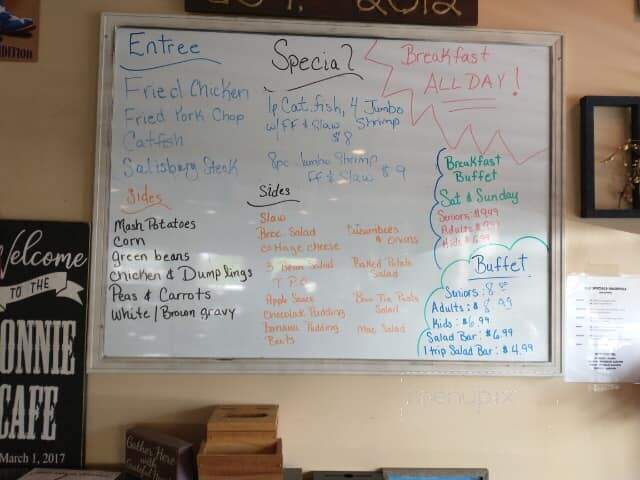 2012
Entree
Fried Chicken
Fried Pork Chop
Catfish
Salisbury Steak
Sides
Mash Potatoes
Corn
green beans
Chicken & Dumplings
Peas & Carrots
White/Brown gravy
Special
1p Cat.fish, 4 Jumbo
w/FF & Slaw Shrimp
$8
8pc Jumbo Shrimp
FF & Slaw $9
Sides
Slaw
Broc. Salad
cottage cheese
3 Bean Salad
T.P.C
Apple Sauce
Chocolate Pudding
banana Pudding
Beets
& onions
Baked Potato
Salad
Bow Tie Pasta
Salad
Mac Salad
Breakfast
ALL DAY!
Breakfast
Buffet
Sat & Sunday
Seniors:
Adults:
Kids:
Buffet
Suniors:
Adults: $
Kids: $6.99
Salad Bar: $6.99
1 trip Salad Bar: $4.99
Welcome
TO THE
ONNIE
CAFE
March 1, 2017
Gather Here
with
Grateful
menupix